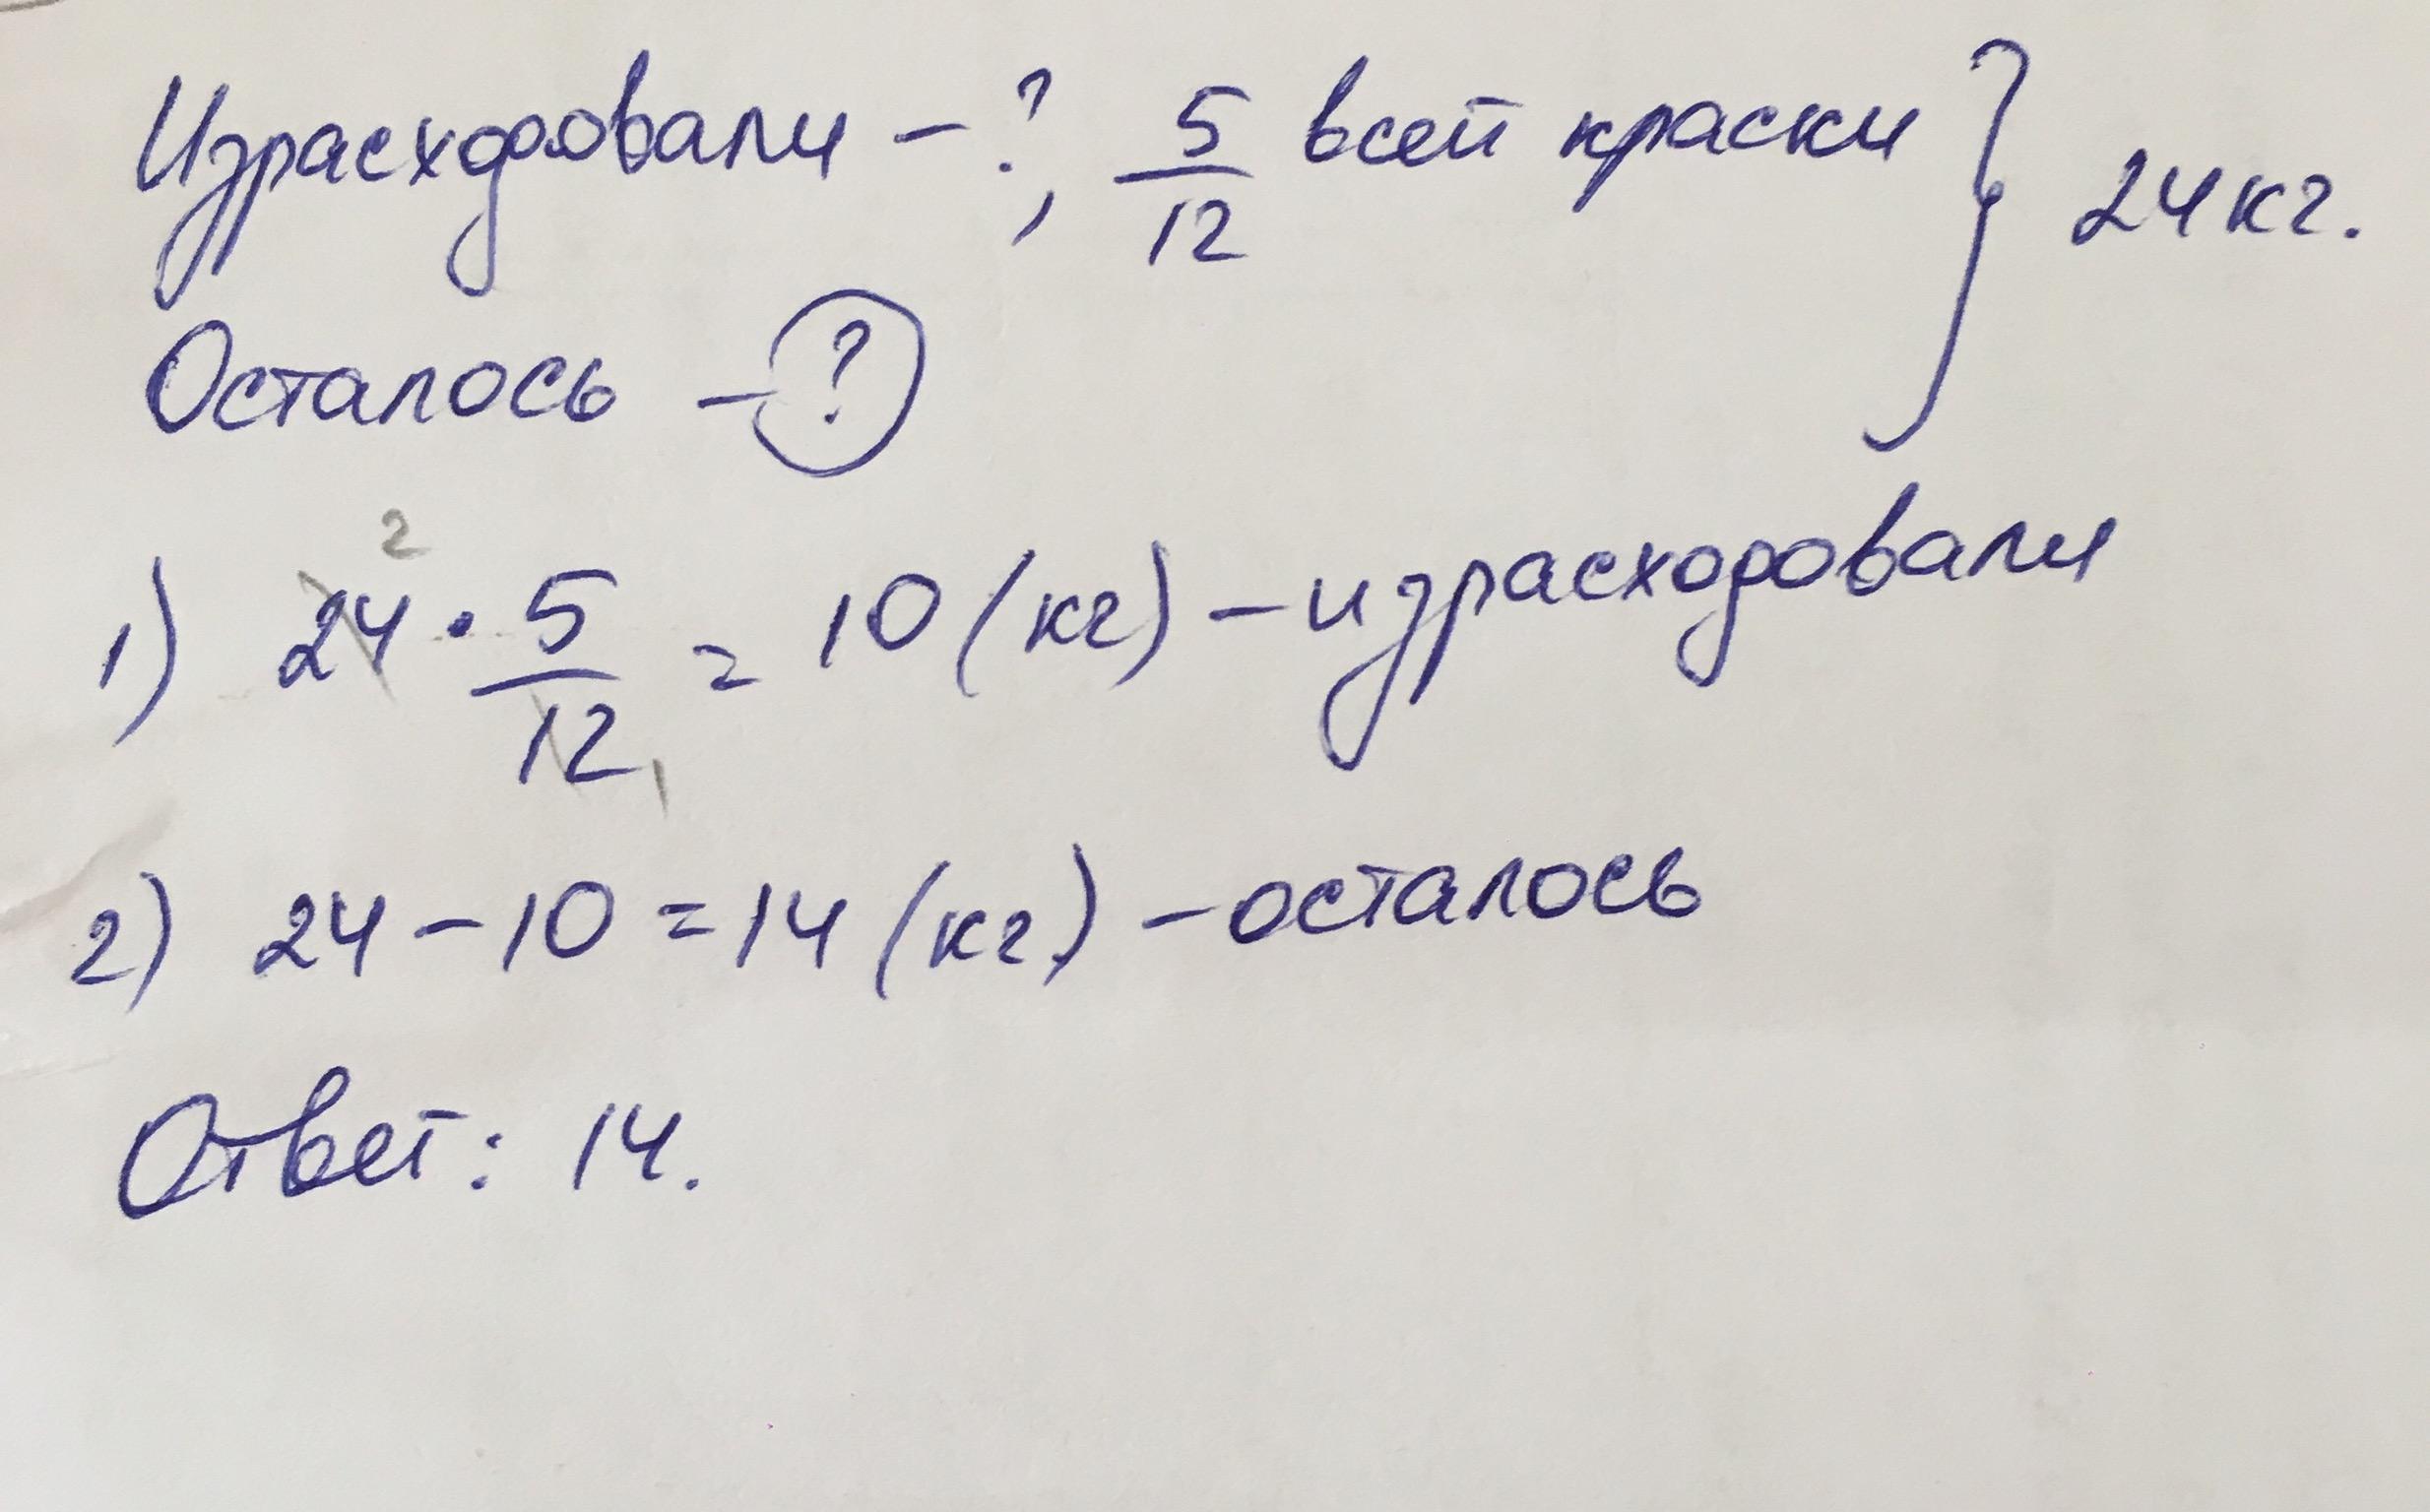 Израсходовали – ?, 5/12 всей краски } 24 кг.
Осталось – ?
2
1) 24 · 5/12 = 10 (кг) – израсходовали
1
2) 24 – 10 = 14 (кг.) – осталось
Ответ: 14.